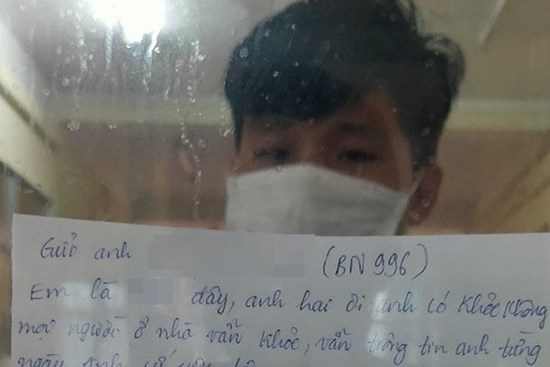 Gửi anh (BN 996)
Em là đây, anh hai ơi anh có khỏe không
mọi người ở nhà vẫn khỏe, vẫn trông tin anh từng
ngày anh cố